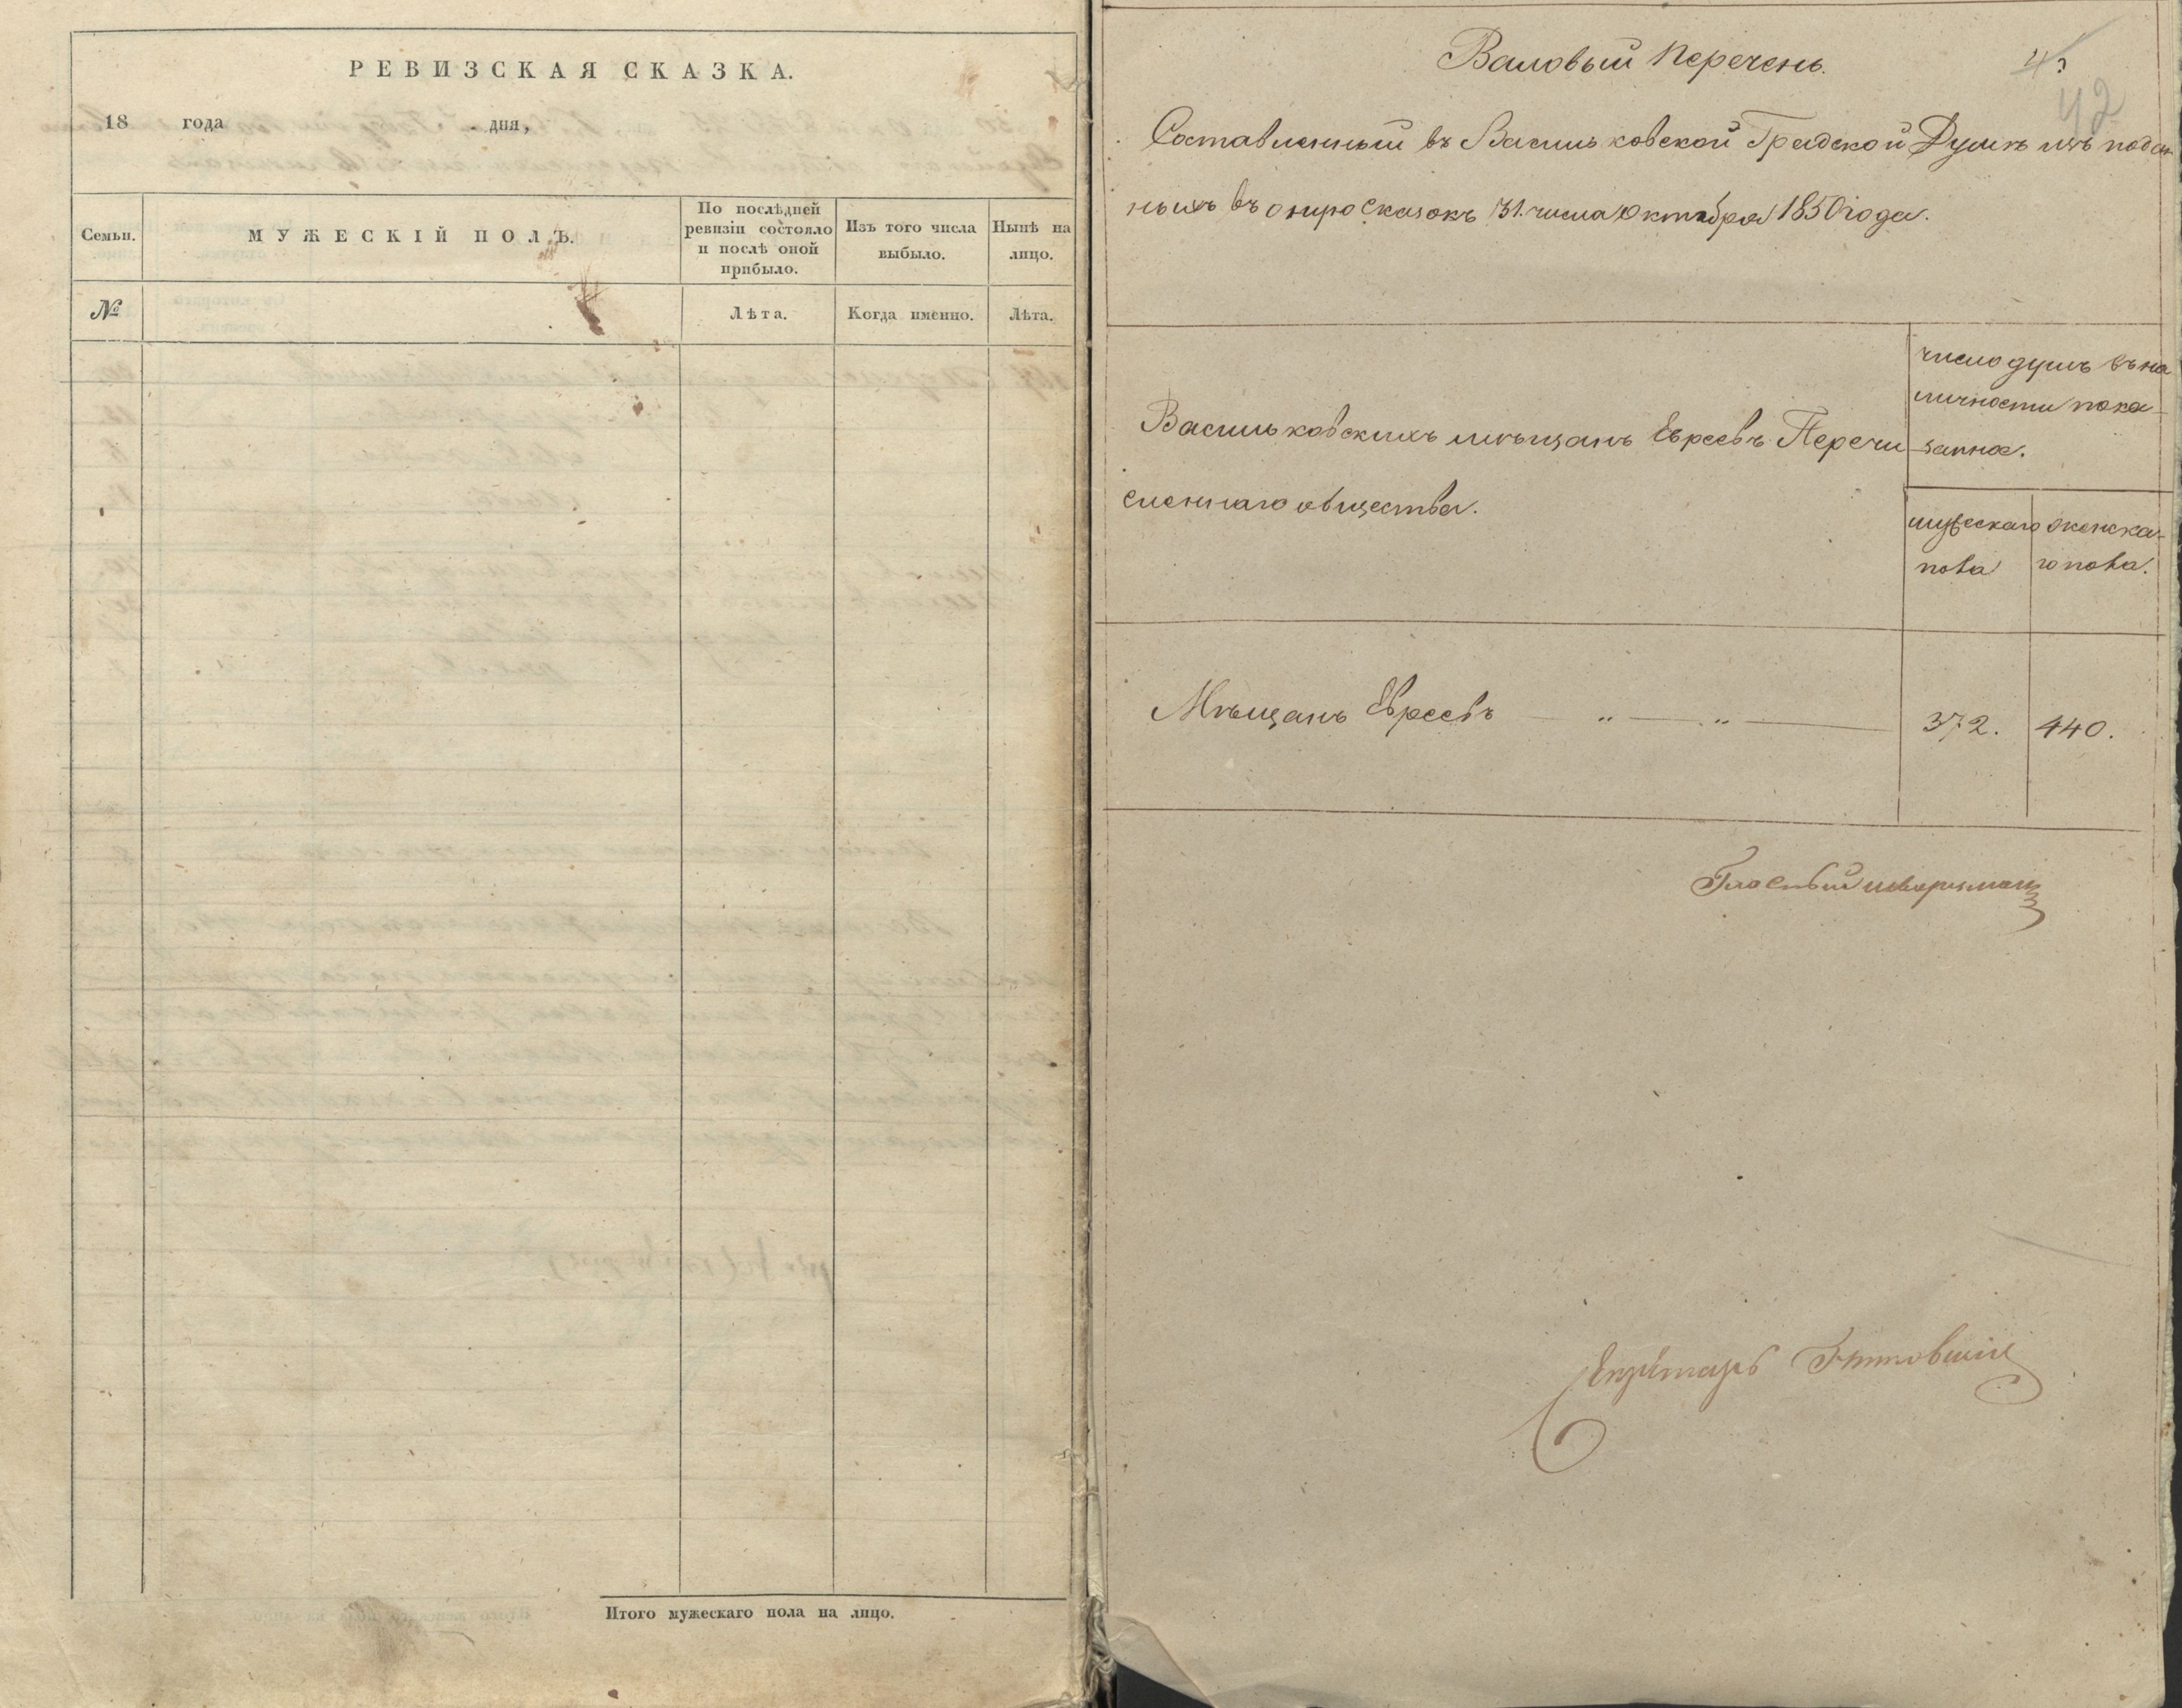 РЕВИЗСКАЯ СКАЗКА.
18 года дня,
Семьи.
МУЖЕСКІЙ ПОЛЪ.
По послѣдней
ревизіи состояло
и послѣ оной
прибыло.
Изъ того числа
выбыло.
Нынѣ на
лицо.
№
Лѣта.
Когда именно.
Лѣта.
Итого мужескаго пола на лицо.
Валовый перечень.
42
Составленный въ Васильковской Градской Думѣ изъ подан
ныхъ въ оную сказокъ 31. числа Октября 1850 года.
Васильковскихъ мѣщанъ Евреевъ Перечи
сленнаго общества.
число душъ въ на
личности пока-
занное.
мужескаго
пола
женска-
го пола.
Мѣщанъ Евреевъ — „ — „ —
372.
440.
Гласный
Секретарь